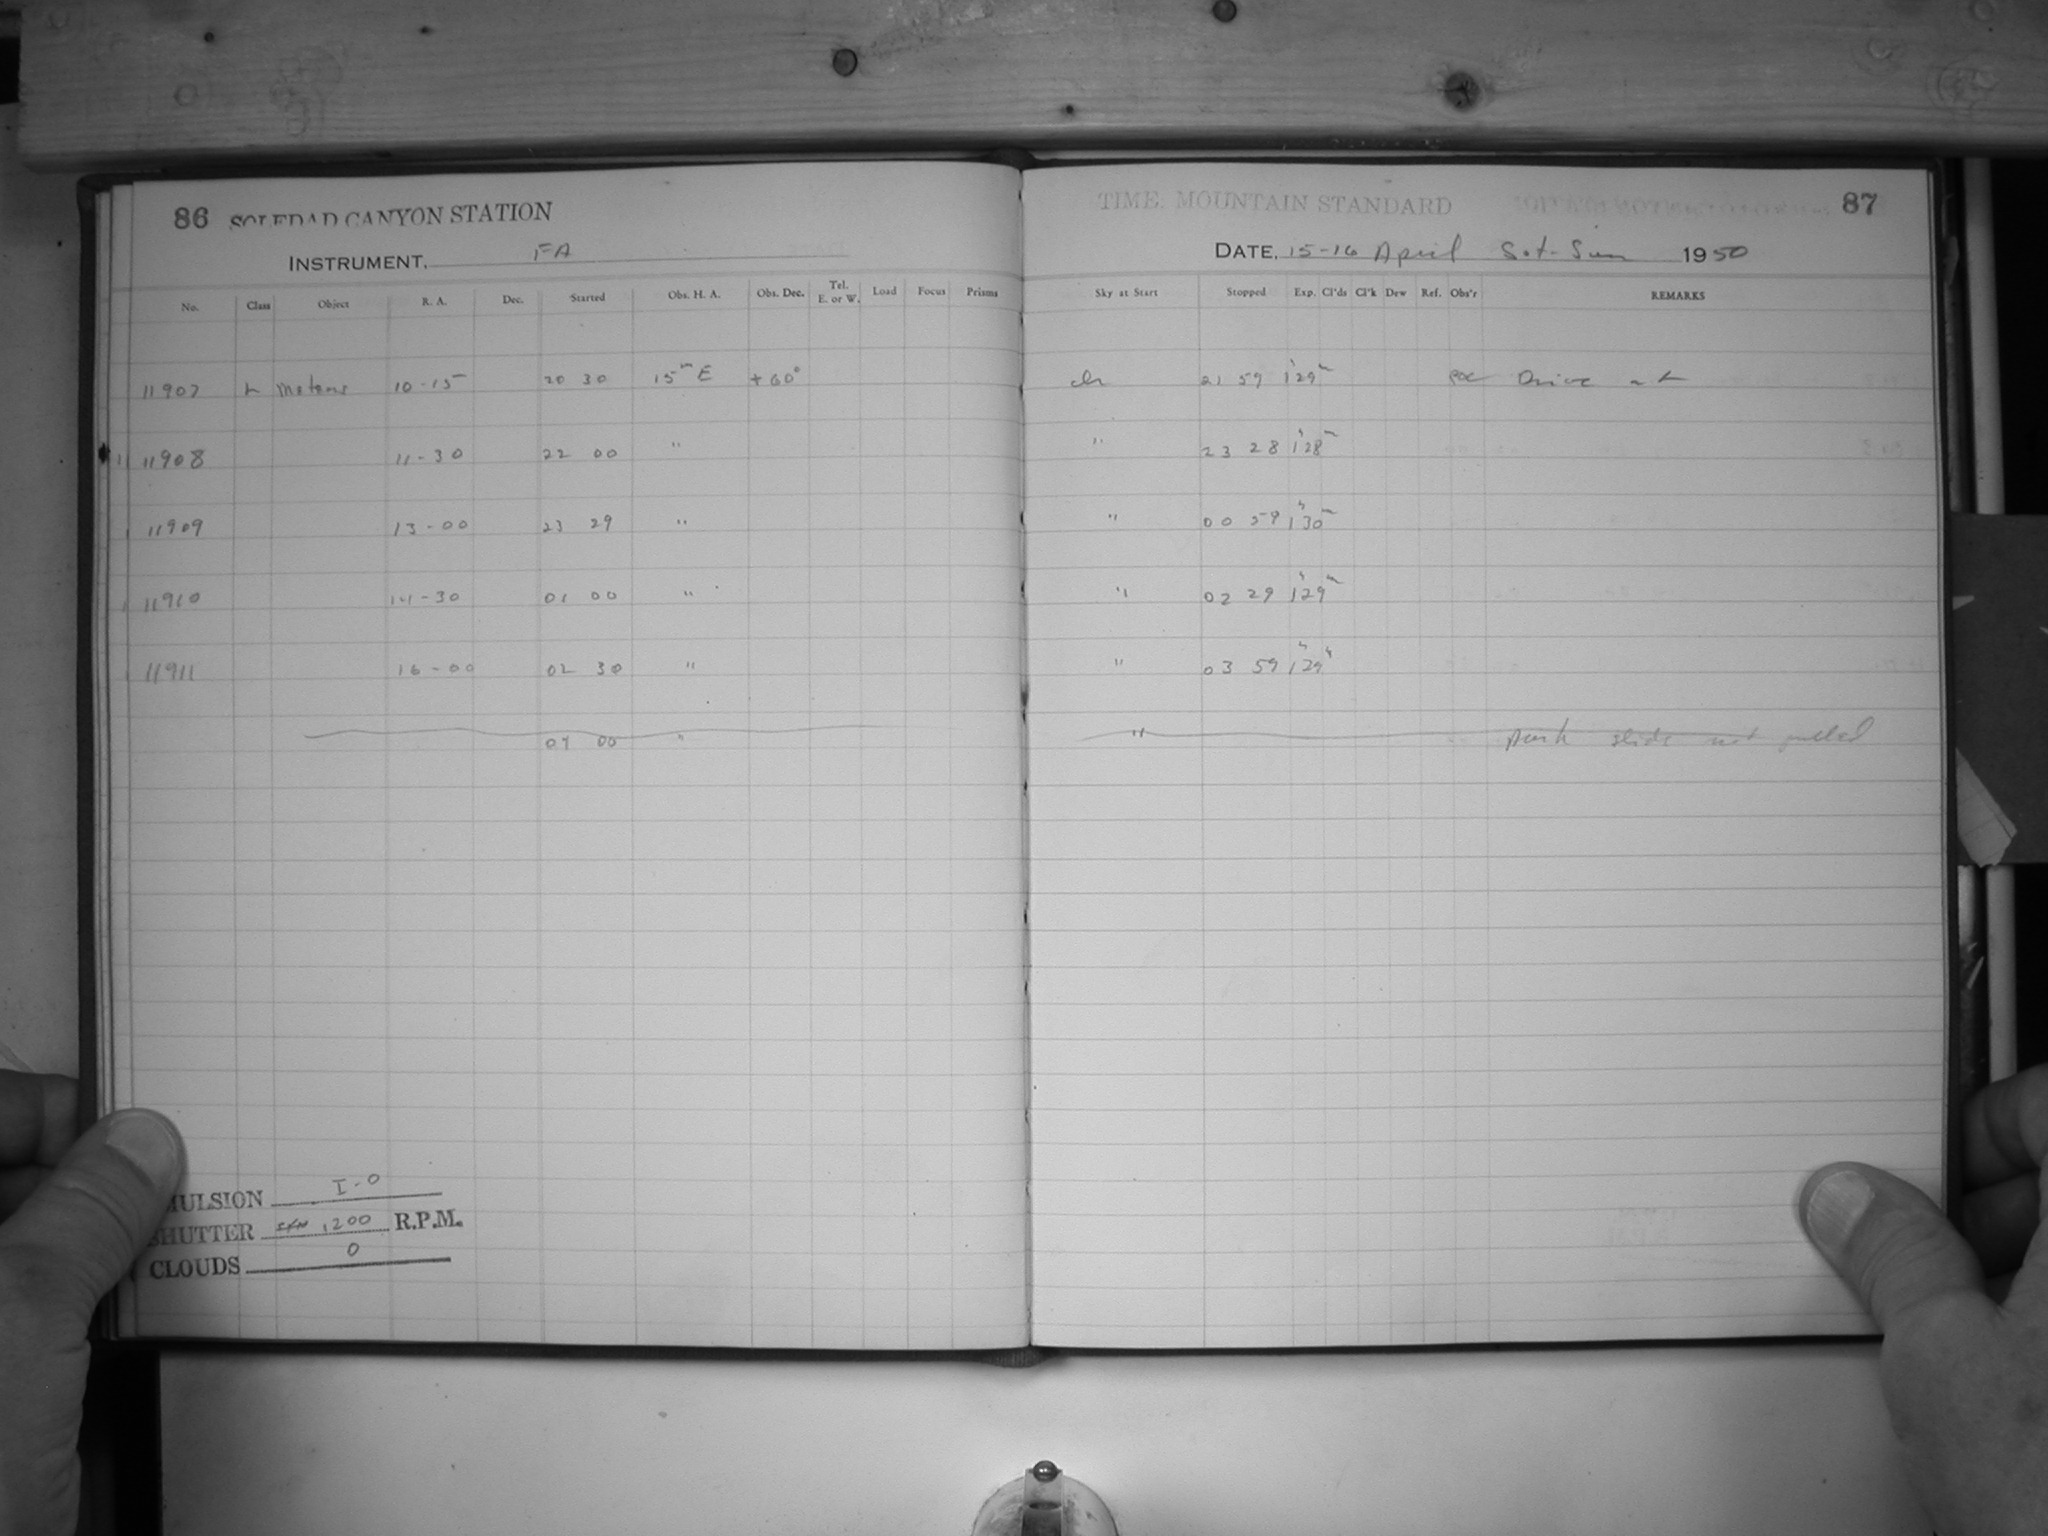 86 SOLEDAD CANYON STATION
INSTRUMENT, FA
No. Class Object R. A. Dec. Started Obs. H. A. Obs. Dec. Tel. E. or W. Load Focus Prisms
11907 L Meteors 10-15 20 30 15m E +60°
11908 11-30 22 00 "
11909 13-00 23 29 "
11910 14-30 01 00 "
11911 16-00 02 30 "
04 00 "
EMULSION I-O
SHUTTER 1200 R.P.M.
CLOUDS 0
TIME: MOUNTAIN STANDARD 87
DATE, 15-16 April Sat-Sun 1950
Sky at Start Stopped Exp. Cl'ds Cl'k Dew Ref. Obs'r REMARKS
clr 21 59 1h29m Drive at
" 23 28 1h28m
" 00 59 1h30m
" 02 29 1h29m
" 03 59 1h29
" Dark slide not pulled